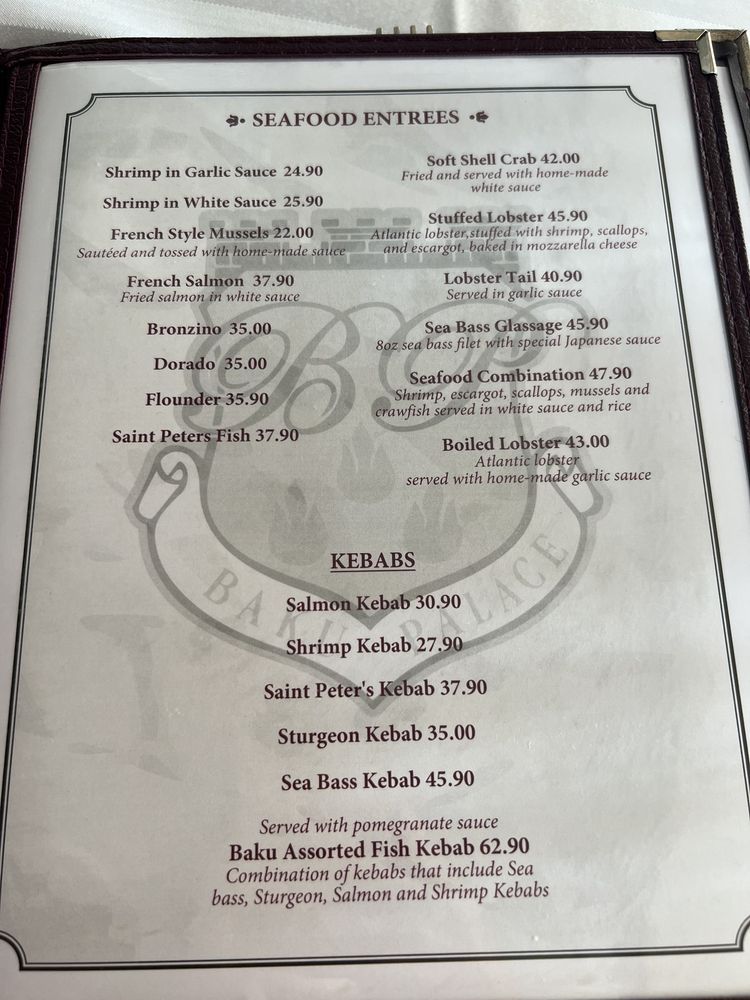 SEAFOOD ENTREES
Shrimp in Garlic Sauce 24.90
Shrimp in White Sauce 25.90
French Style Mussels 22.00
Sautéed and tossed with home-made sauce
French Salmon 37.90
Fried salmon in white sauce
Bronzino 35.00
Dorado 35.00
Flounder 35.90
Saint Peters Fish 37.90
Soft Shell Crab 42.00
Fried and served with home-made
white sauce
Stuffed Lobster 45.90
Atlantic lobster,stuffed with shrimp, scallops,
and escargot, baked in mozzarella cheese
Lobster Tail 40.90
Served in garlic sauce
Sea Bass Glassage 45.90
8oz sea bass filet with special Japanese sauce
Seafood Combination 47.90
Shrimp, escargot, scallops, mussels and
crawfish served in white sauce and rice
Boiled Lobster 43.00
Atlantic lobster
served with home-made garlic sauce
BP
BAKU PALACE
KEBABS
Salmon Kebab 30.90
Shrimp Kebab 27.90
Saint Peter's Kebab 37.90
Sturgeon Kebab 35.00
Sea Bass Kebab 45.90
Served with pomegranate sauce
Baku Assorted Fish Kebab 62.90
Combination of kebabs that include Sea
bass, Sturgeon, Salmon and Shrimp Kebabs